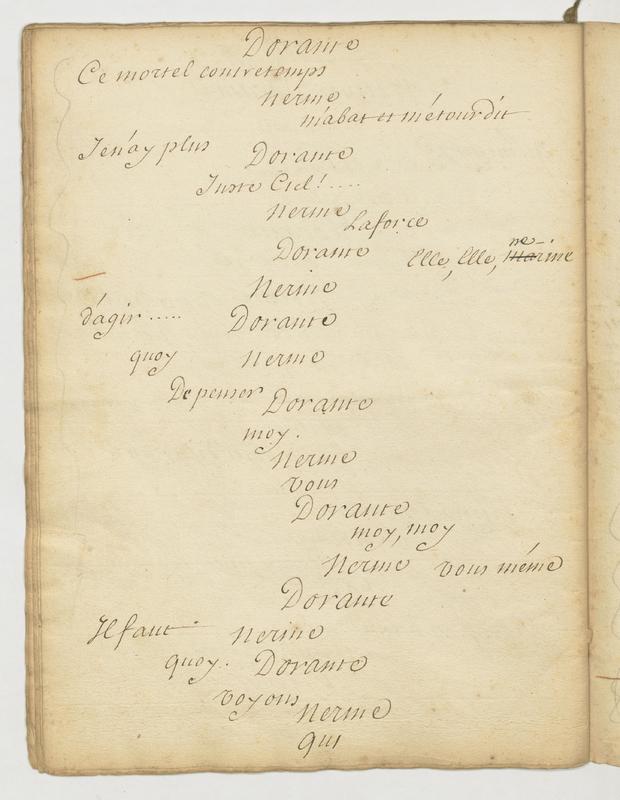 Dorante
Ce mortel contretemps
Nérine
m'abat et m'étourdit
Je n'ay plus
Dorante
Juste Ciel! ....
Nerine
La force
Dorante
Elle, Elle, ~~Ma~~ ne-rine
Nerine
d'agir .....
Dorante
quoy
Nerine
De penser
Dorante
moy.
Nerine
vous
Dorante
moy, moy
Nerine
vous même
Dorante
Il faut
Nerine
quoy.
Dorante
voyons
Nerine
qui